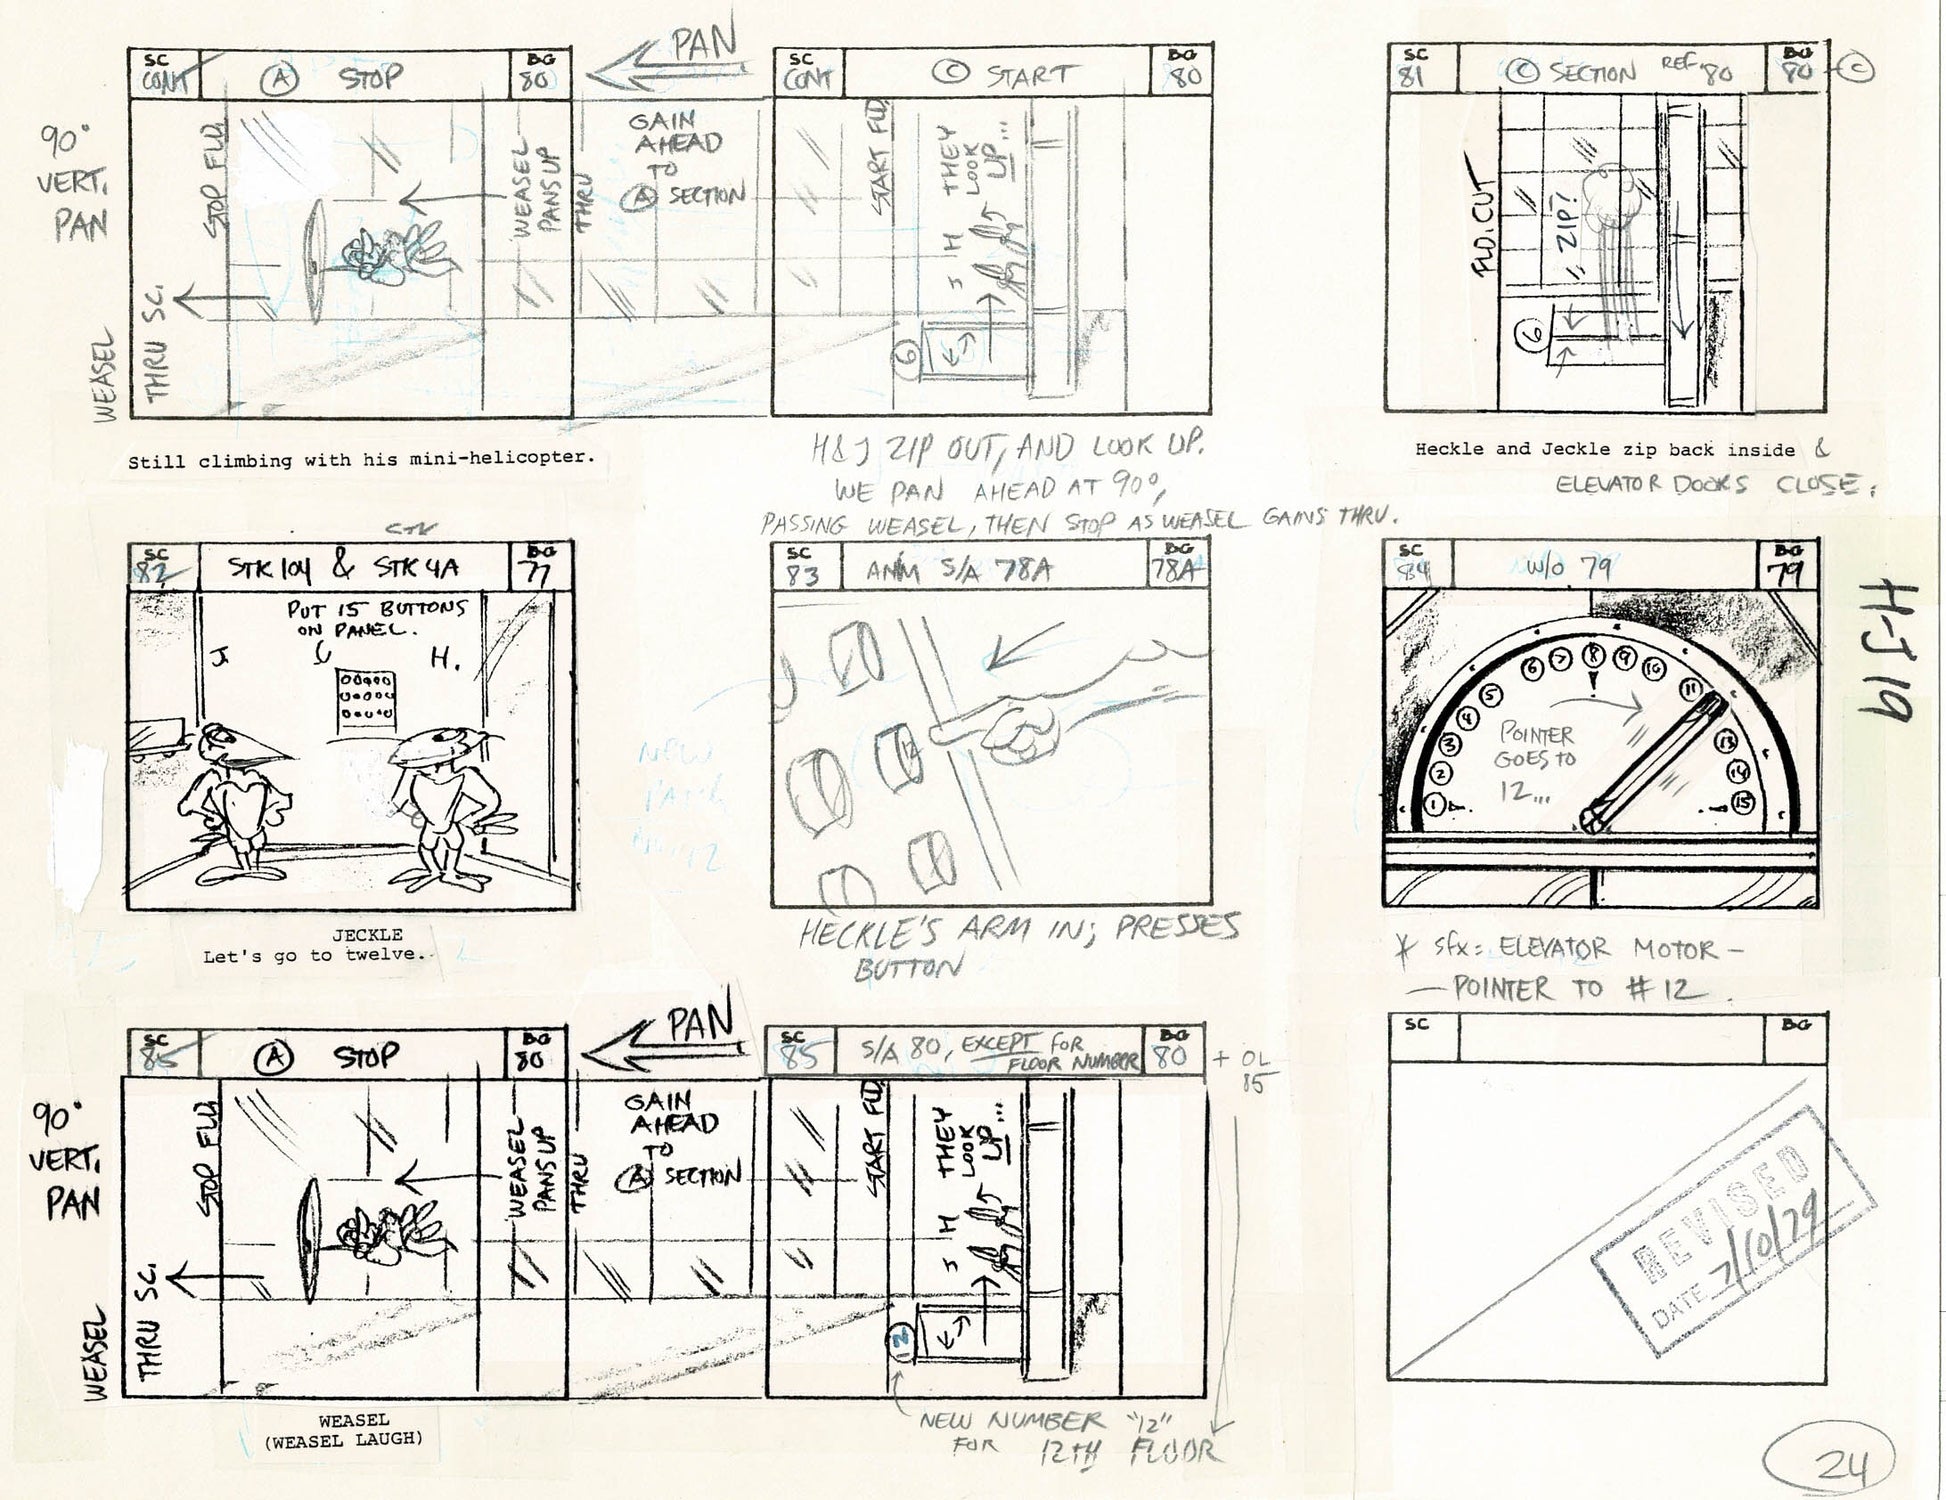 SC
CONT
Ⓐ STOP
BG
80
PAN
SC
CONT
Ⓒ START
BG
80
SC
81
Ⓒ SECTION REF. 80
BG
80 - Ⓒ
90°
VERT.
PAN
STOP FLD.
WEASEL
PANS UP
THRU
GAIN
AHEAD
TO
Ⓐ SECTION
START FLD.
THEY
LOOK
UP...
J H
6
WEASEL
THRU SC.
FLD. CUT
ZIP!
6
Still climbing with his mini-helicopter.
H & J ZIP OUT, AND LOOK UP.
WE PAN AHEAD AT 90°,
PASSING WEASEL, THEN STOP AS WEASEL GAINS THRU.
Heckle and Jeckle zip back inside &
ELEVATOR DOORS CLOSE.
SC
82
STK 104 & STK 4A
BG
77
PUT 15 BUTTONS
ON PANEL.
J
H.
JECKLE
Let's go to twelve.
SC
83
ANM S/A 78A
BG
78A
12
HECKLE'S ARM IN; PRESSES
BUTTON
SC
84
W/O 79
BG
79
1 2 3 4 5 6 7 8 9 10 11 13 14 15
POINTER
GOES TO
12...
* SFX: ELEVATOR MOTOR -
- POINTER TO #12.
H-J 19
SC
85
Ⓐ STOP
BG
80
PAN
SC
85
S/A 80, EXCEPT FOR
FLOOR NUMBER
BG
80
+ OL
85
90°
VERT.
PAN
STOP FLD.
WEASEL
PANS UP
THRU
GAIN
AHEAD
TO
Ⓐ SECTION
START FLD.
THEY
LOOK
UP...
J H
12
WEASEL
THRU SC.
WEASEL
(WEASEL LAUGH)
NEW NUMBER "12"
FOR 12TH FLOOR
SC
BG
REVISED
DATE 7/10/79
24